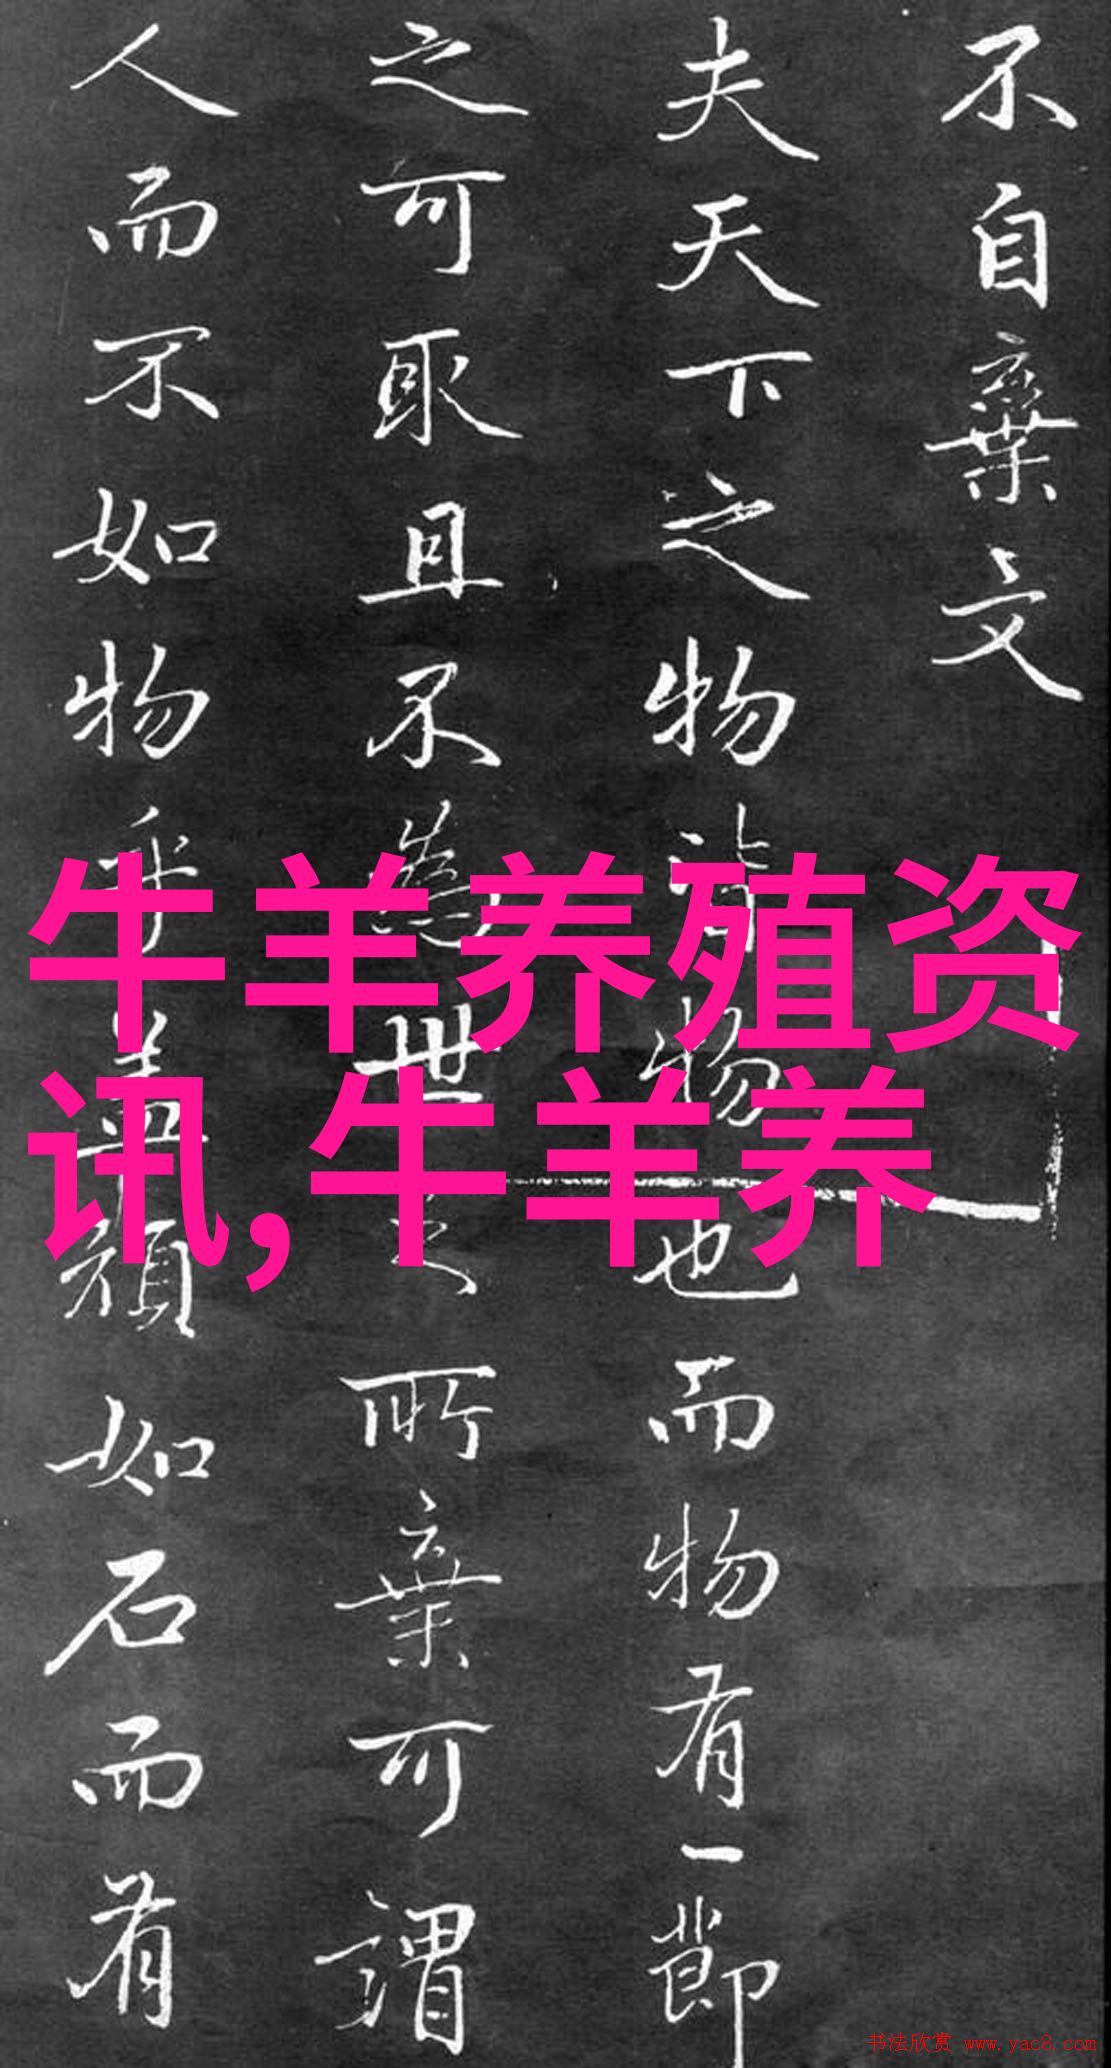 不自棄文
夫天下之物皆物也而物有一節
之可取且不為世之所棄可謂
人而不如物乎盖頑如石而有
牛羊养殖资
讯,牛羊养
书法欣赏 www.yac8.com